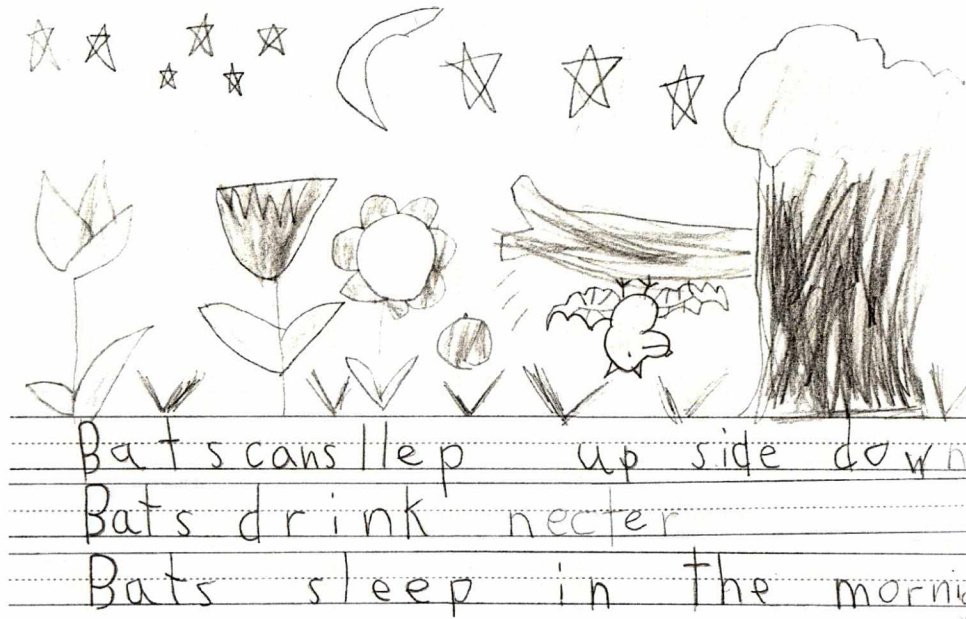 Bats can sllep up side down
Bats drink necter
Bats sleep in the morni